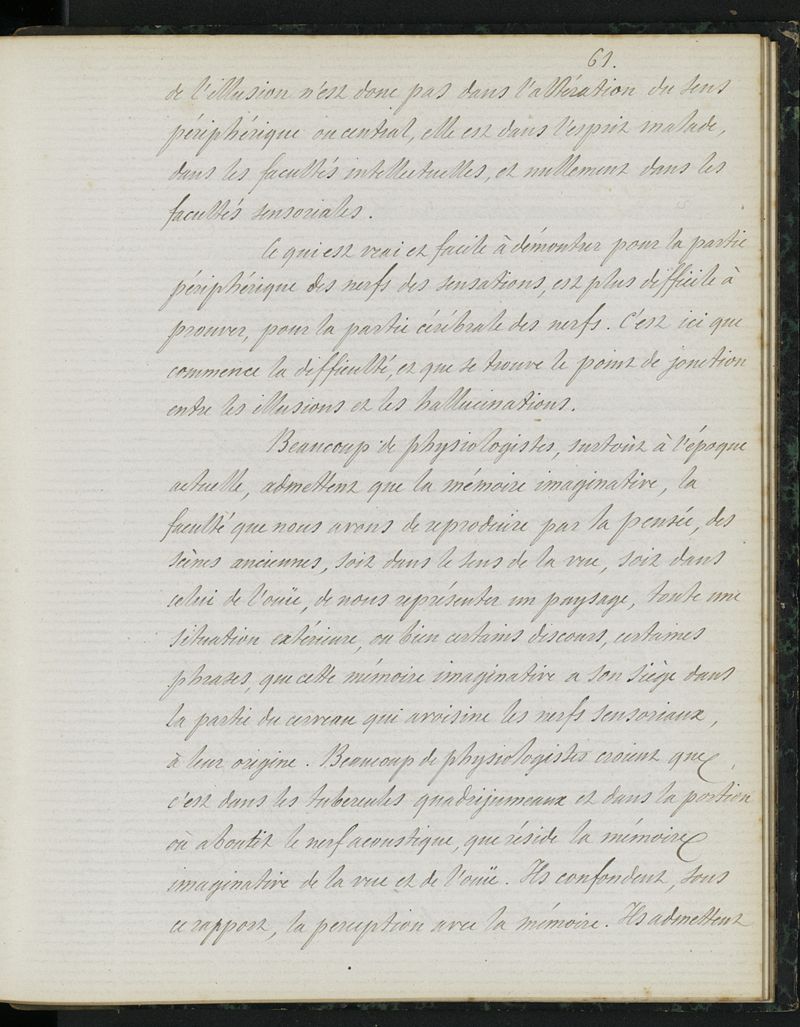 61.
de l'illusion n'est donc pas dans l'altération du sens
périphérique ou central, elle est dans l'esprit malade,
dans les facultés intellectuelles, et nullement dans les
facultés sensoriales.
Ce qui est vrai et facile à démontrer pour la partie
périphérique des nerfs des sensations, est plus difficile à
prouver, pour la partie cérébrale des nerfs. C'est ici que
commence la difficulté, et que se trouve le point de jonction
entre les illusions et les hallucinations.
Beaucoup de physiologistes, surtout à l'époque
actuelle, admettent que la mémoire imaginative, la
faculté que nous avons de reproduire par la pensée, des
scènes anciennes, soit dans le sens de la vue, soit dans
celui de l'ouïe, de nous représenter un paysage, toute une
situation extérieure, ou bien certains discours, certaines
phrases, que cette mémoire imaginative a son siège dans
la partie du cerveau qui avoisine les nerfs sensoriaux,
à leur origine. Beaucoup de physiologistes croient que,
c'est dans les tubercules quadrijumeaux et dans la portion
où aboutit le nerf acoustique, que réside la mémoire
imaginative de la vue et de l'ouïe. Ils confondent, sous
ce rapport, la perception avec la mémoire. Ils admettent